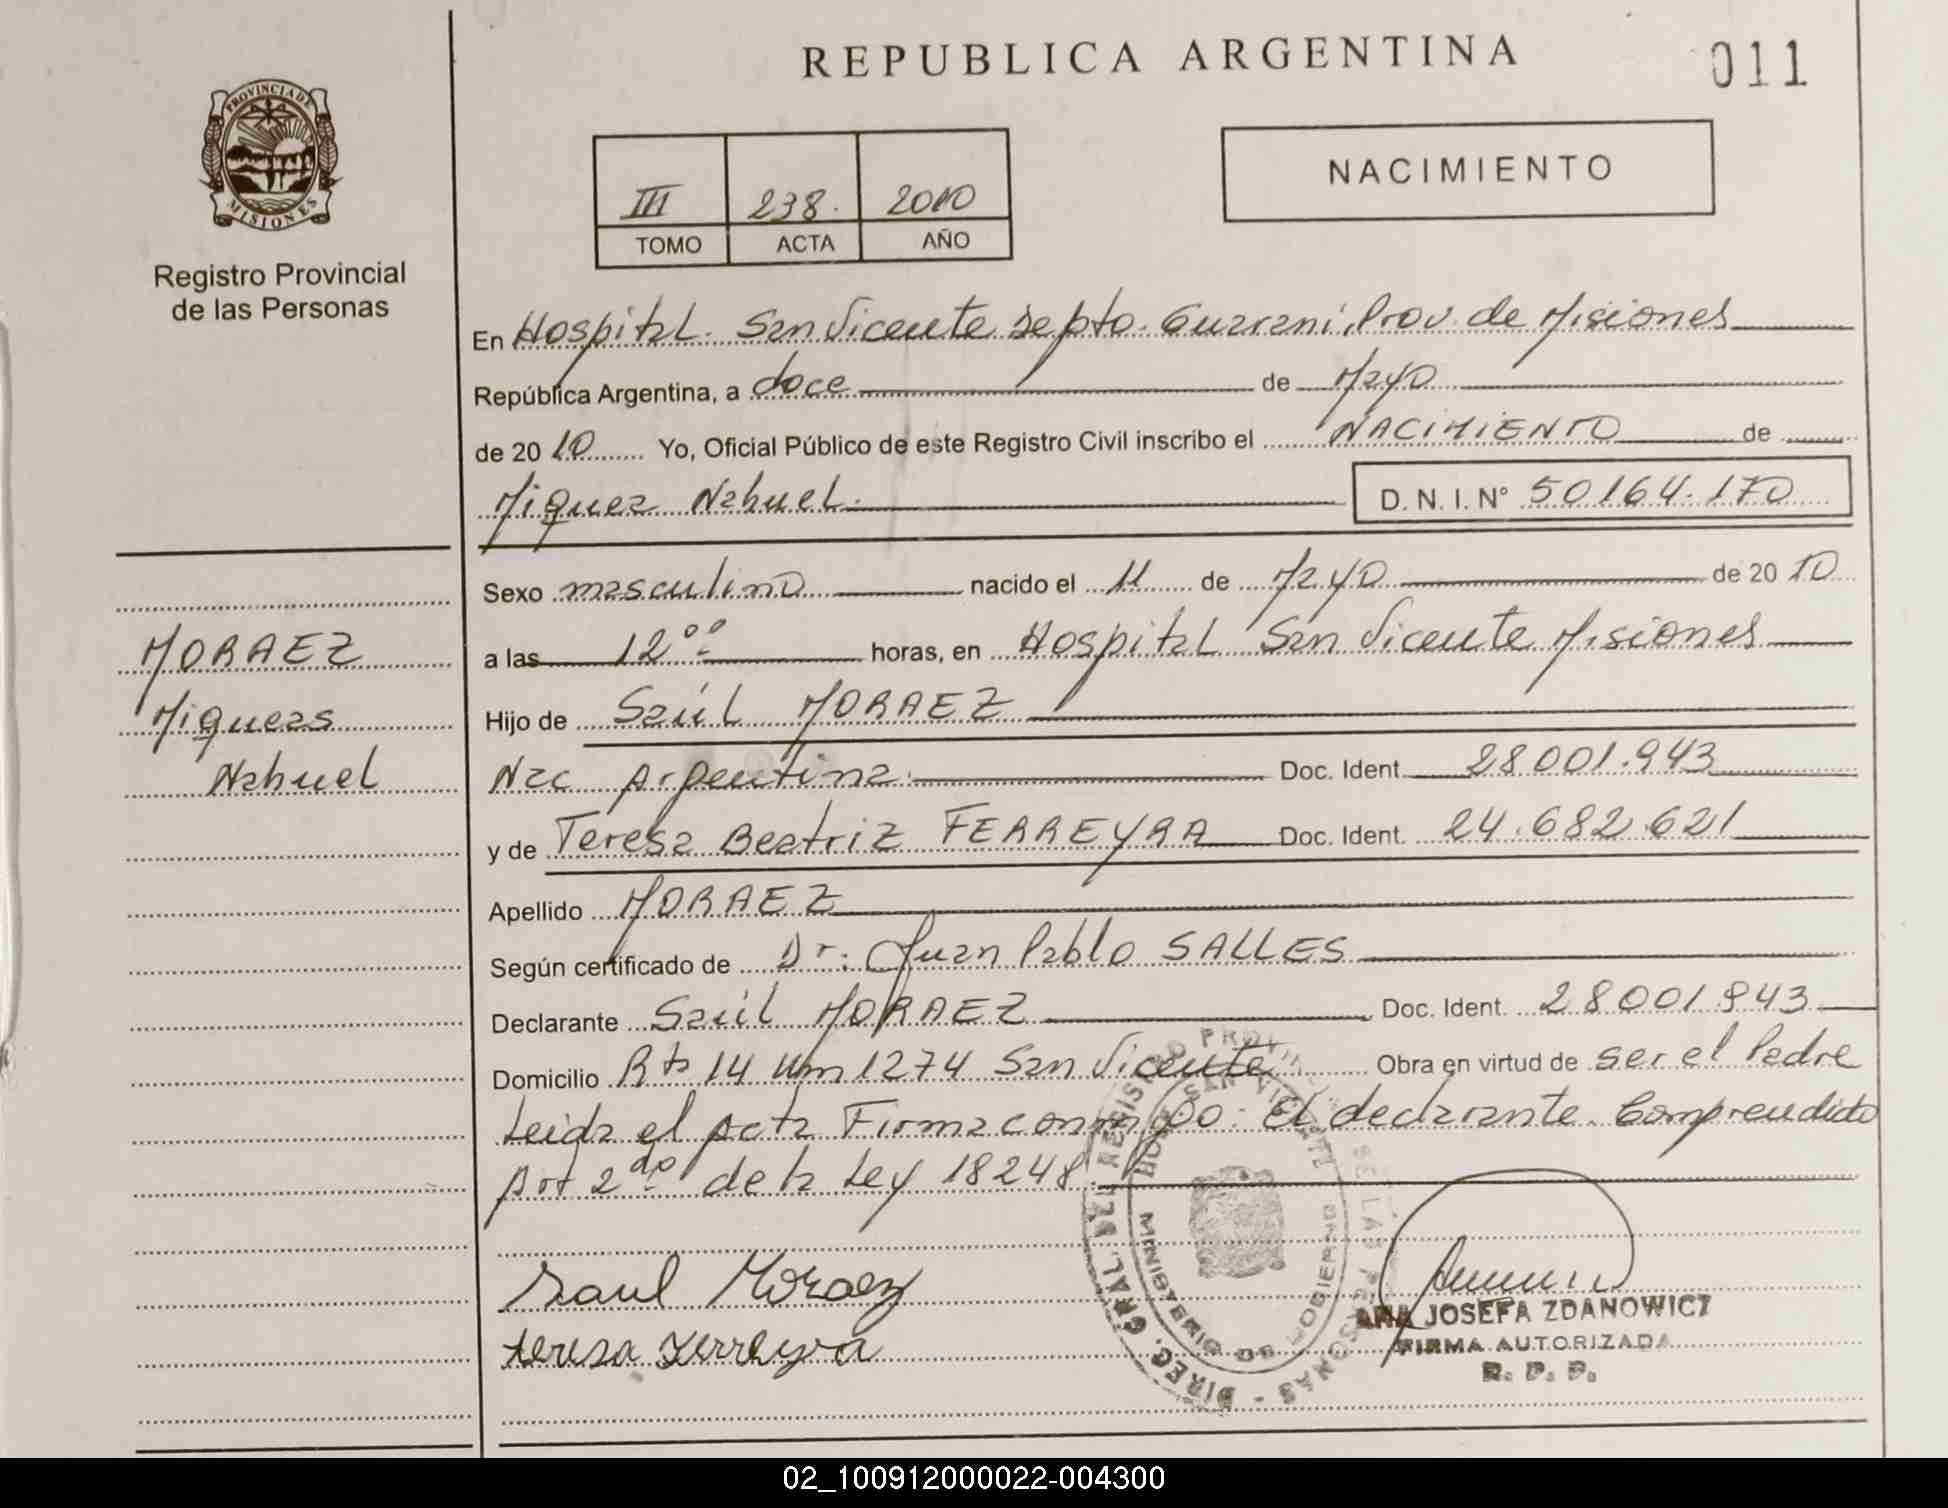 REPUBLICA ARGENTINA
011
PROVINCIA DE
MISIONES
Registro Provincial
de las Personas
III 238. 2010
TOMO ACTA AÑO
NACIMIENTO
En Hospital. San Vicente Depto. Guaraní, Prov. de Misiones
República Argentina, a doce de Mayo
de 2010 Yo, Oficial Público de este Registro Civil inscribo el NACIMIENTO de
Miquea Nahuel.
D. N. I. N° 50164.170
Sexo masculino nacido el 11 de Mayo de 2010
a las 12°° horas, en Hospital San Vicente Misiones
Hijo de Saúl MORAEZ
Nac Argentina. Doc. Ident. 28.001.943
y de Teresa Beatriz FERREYRA Doc. Ident. 24.682.621
Apellido MORAEZ
Según certificado de Dr: Juan Pablo SALLES
Declarante Saúl MORAEZ Doc. Ident. 28001.943
Domicilio Rta 14 Km 1274 San Vicente Obra en virtud de ser el Padre
Leida el acta Firma conmigo. El declarante. Comprendido
Art 2do de la Ley 18248
MORAEZ
Miqueas
Nahuel
Saul Moraez
teresa Ferreyra
DIREC. GRAL. DEL REGISTRO PROVINCIAL DE LAS PERSONAS
HOSP. SAN VICENTE
MINISTERIO DE GOBIERNO
ANA JOSEFA ZDANOWICZ
FIRMA AUTORIZADA
R. P. P.
02_100912000022-004300